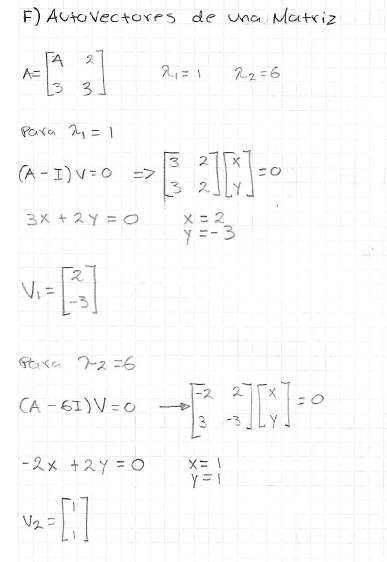 F) AutoVectores de una Matriz
A= [4 2
3 3] λ₁ = 1 λ₂ = 6
Para λ₁ = 1
(A - I) V = 0 => [3 2
3 2] [x
y] = 0
3x + 2y = 0 x = 2
y = -3
V₁ = [2
-3]
Para λ₂ = 6
(A - 6I) V = 0 → [-2 2
3 -3] [x
y] = 0
-2x + 2y = 0 x = 1
y = 1
V₂ = [1
1]